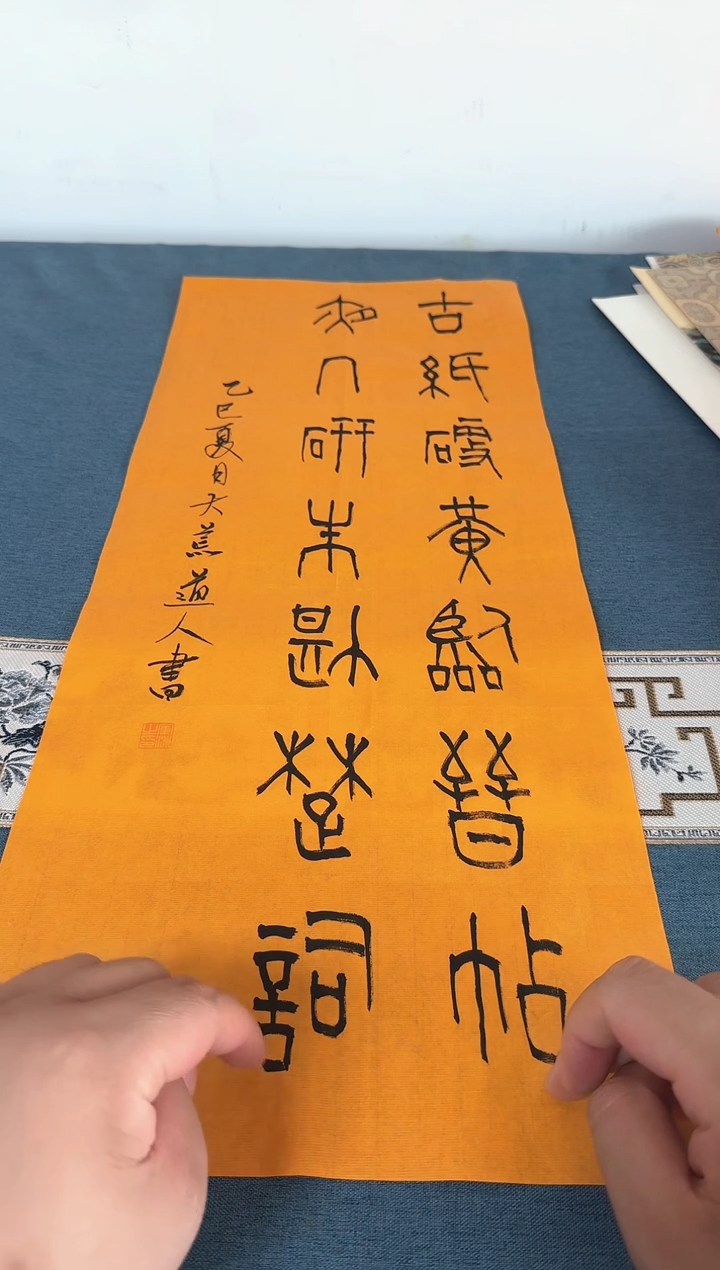 古紙硬黃臨晉帖
几研朱勘楚詞
乙巳夏日大荒道人書